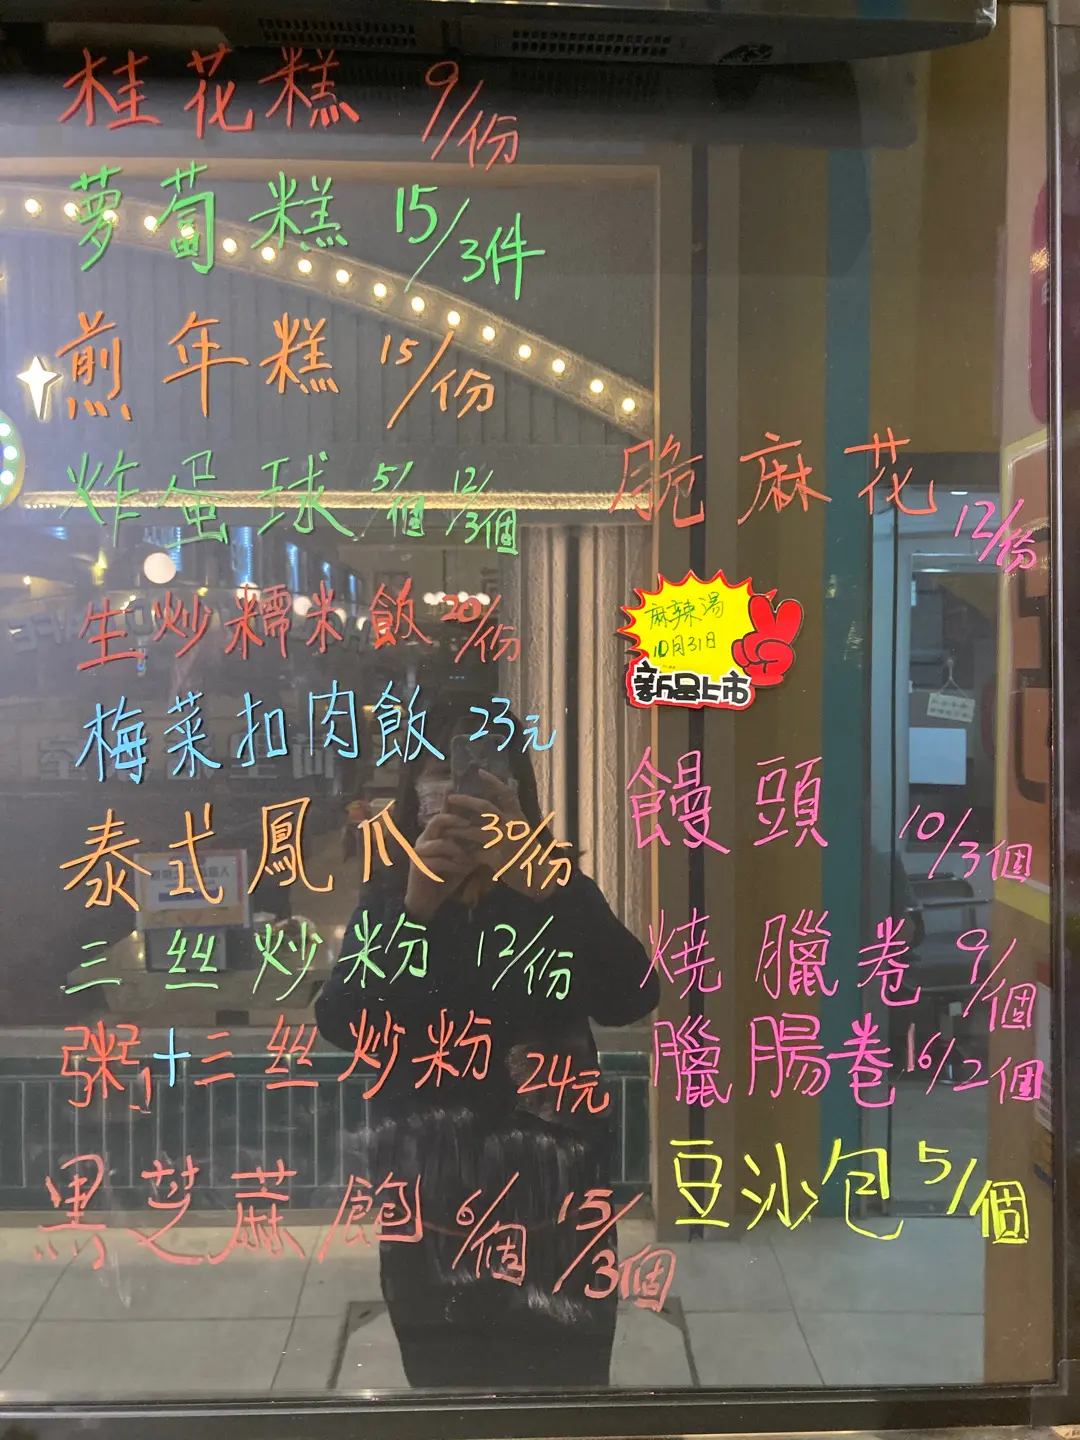 桂花糕 9/份
蘿蔔糕 15/3件
煎年糕 15/份
炸蛋球 5/個 12/3個
生炒糯米飯 20/份
梅菜扣肉飯 23元
泰式鳳爪 30/份
三丝炒粉 12/份
粥+三丝炒粉 24元
黑芝蔴飽 6/個 15/3個
脆麻花 12/份
麻辣湯
10月31日
新品上市
饅頭 10/3個
燒臘卷 9/個
臘腸卷 16/2個
豆沙包 5/個